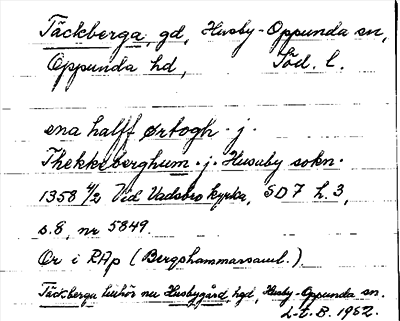 Täckberga, gd, Husby-Oppunda sn,
Oppunda hd, Söd. l.
ena halff ørtogh . j .
Thekkeberghum . j . Husuby sokn .
1358 4/2 Vid Vadsbro kyrka, SD 7 h. 3,
s. 8, nr 5849.
Or i RAp (Bergshammarsaml.)
Täckberga hör nu Husbygård, hgd, Husby-Oppunda sn.
L-t. B. 1952.